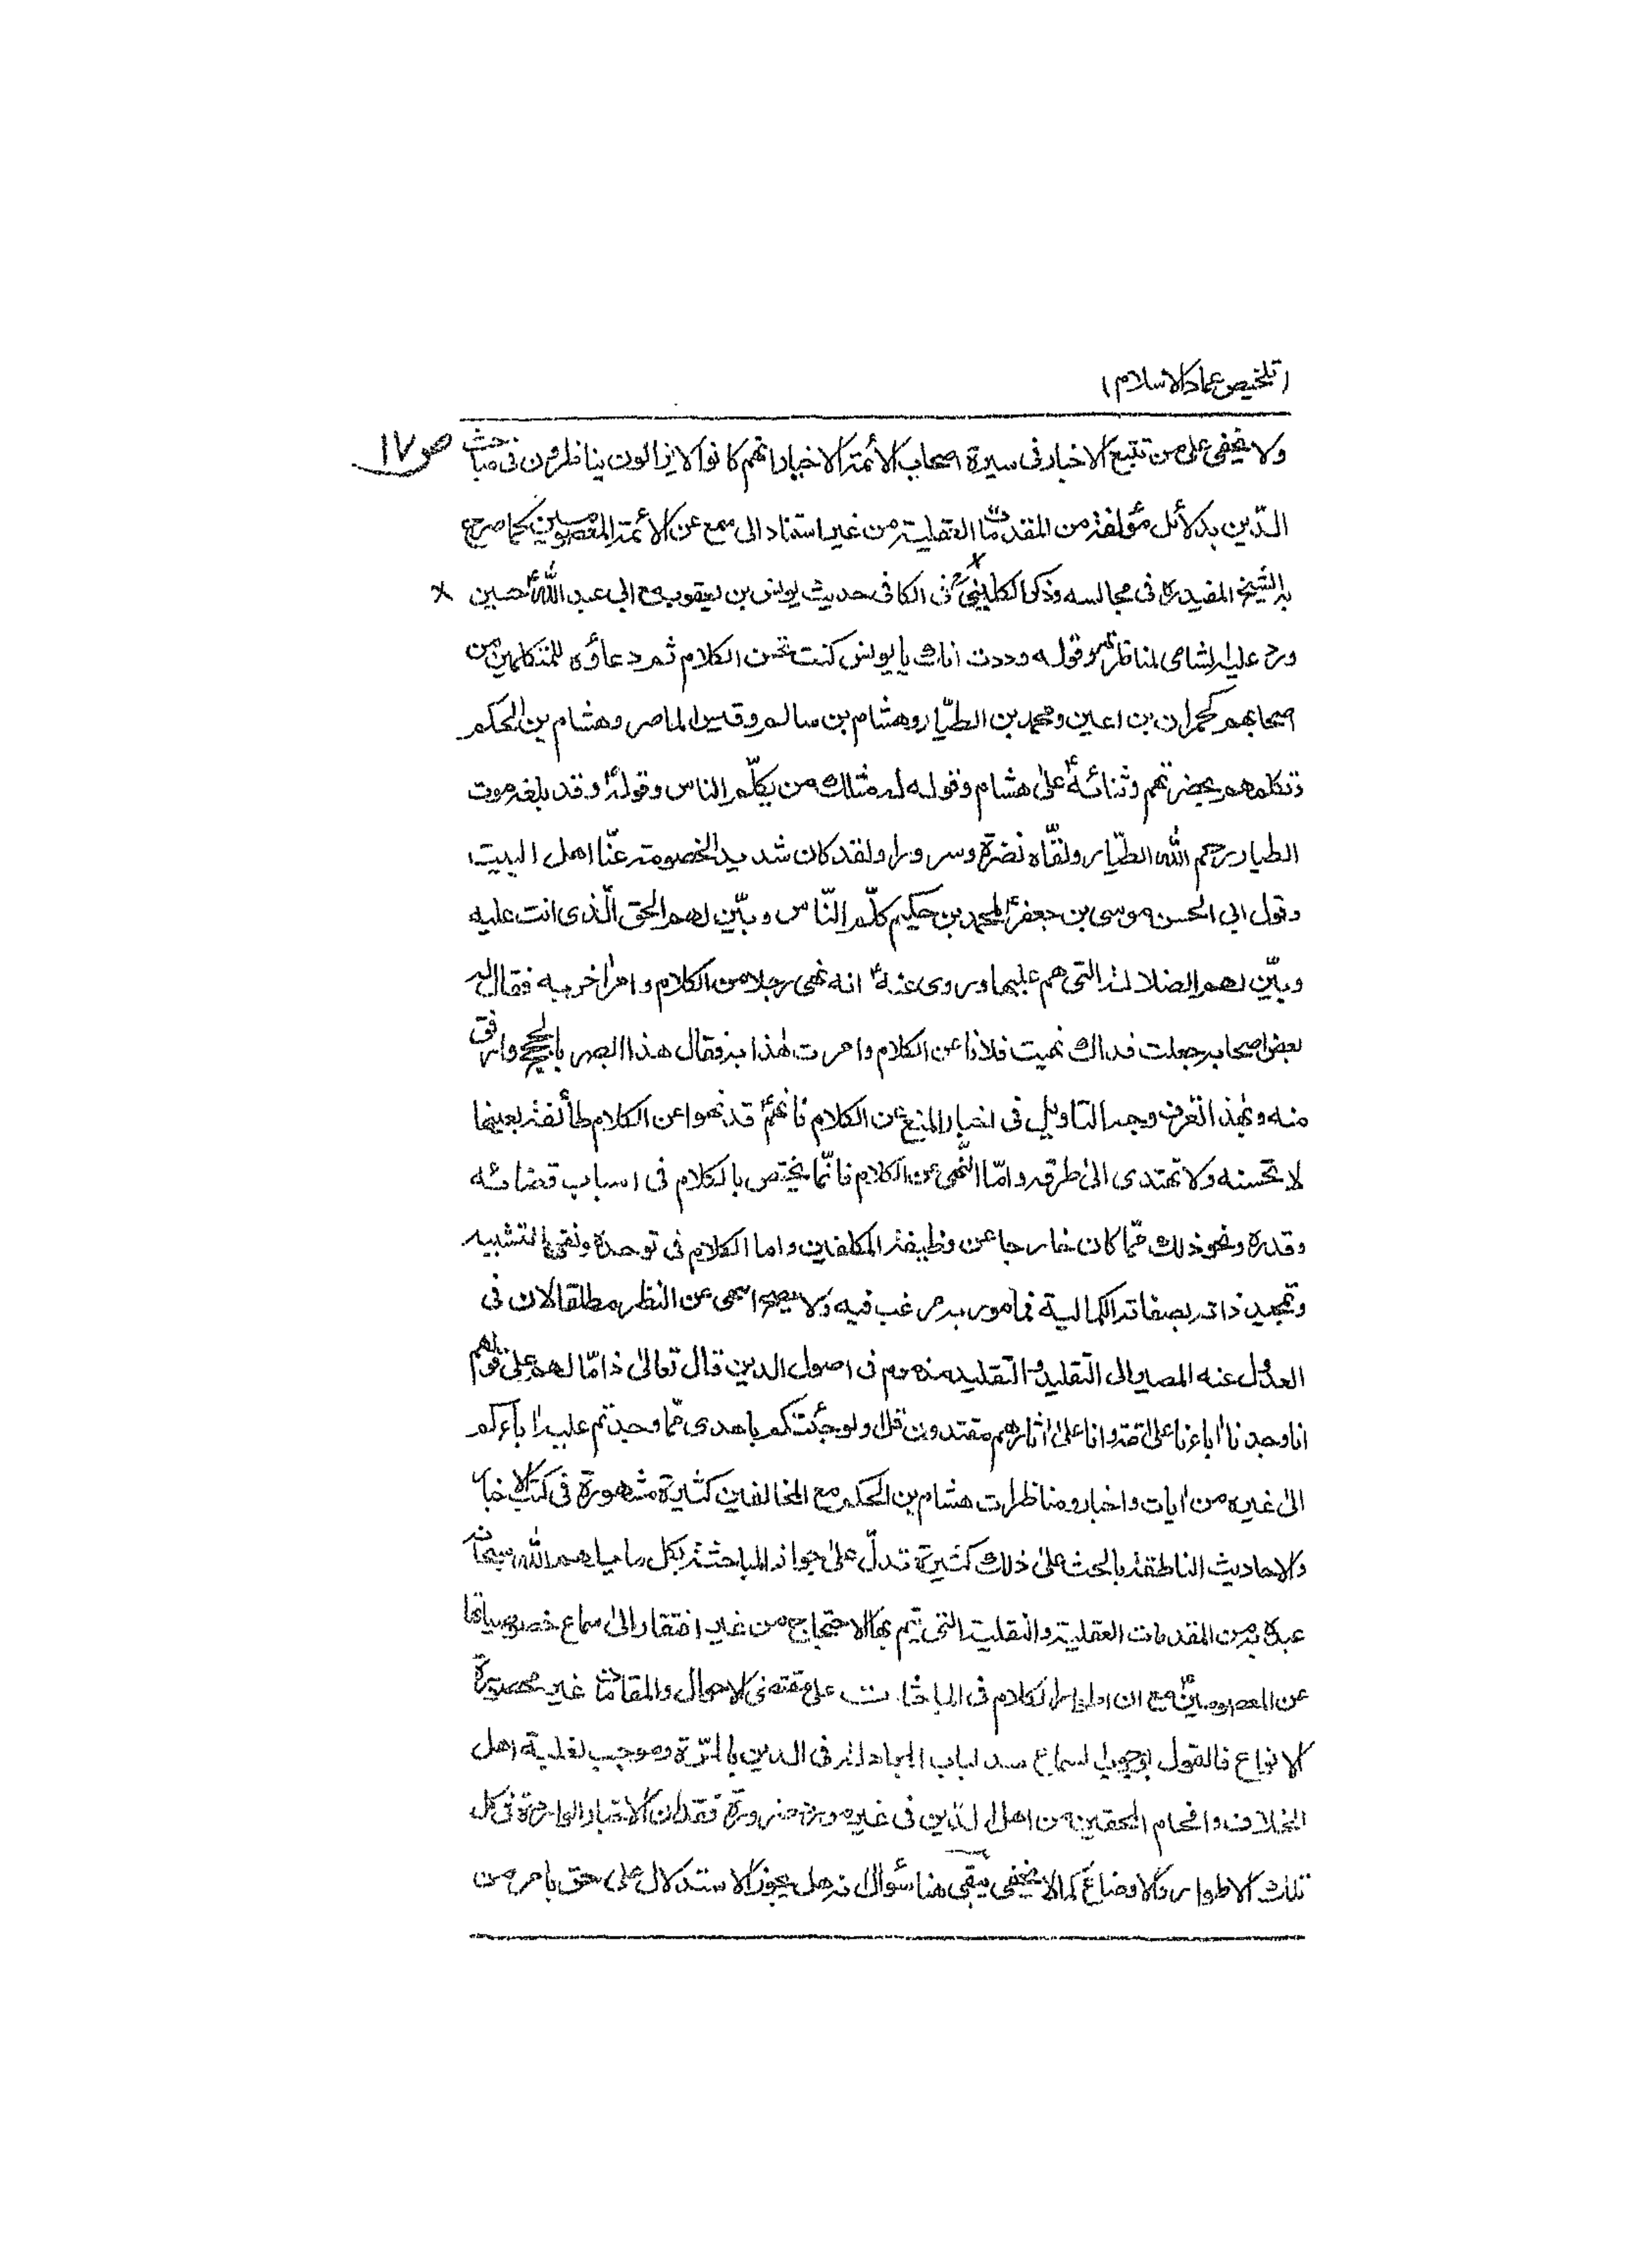 (تلخيص عماد الاسلام)
ص ١٧
ولا يخفى على من تتبع الاخبار فى سيرة اصحاب الأئمة الاخيار انهم كانوا لا يزالون يناظرون فى مباحث
الدّين بدلائل مؤلفة من المقدمات العقلية من غير استناد الى سمع عن الأئمة المعصومين كما صرح
به الشيخ المفيد ره فى مجالسه وذكر الكلينى رح فى الكافى حديث يونس بن يعقوب مع ابي عبد اللهؑ حين
ورد عليه الشامى لمناظرتهم وقوله وددت انك يا يونس كنت تحسن الكلام ثم دعاؤه للمتكلمين من
اصحابهم كحمران بن اعين ومحمد بن الطيّار وهشام بن سالم وقيس الماصر وهشام بن الحكم
وتكلمهم بحضرتهم وثنائهؑ على هشام وقوله له مثلك من يكلّم الناس وقولهؑ وقد بلغه موت
الطيار رحم الله الطيّار ولقّاه نضرة وسرورا ولقد كان شديد الخصومة عنّا اهل البيت
وقول ابي الحسن موسى بن جعفرؑ لمحمد بن حكيم كلّم النّاس وبيّن لهم الحق الّذى انت عليه
وبيّن لهم الضلالة التى هم عليها وروى عنهؑ انه نهى رجلا من الكلام وامر اخر به فقال له
بعض اصحابه جعلت فداك نهيت فلانا عن الكلام وامرت هذا به فقال هذا ابصر بالحجج وارفق
منه وبهذا انعرف وجه التاويل فى اخبار المنع عن الكلام فانهمؑ قد نهوا عن الكلام طائفة بعينها
لا تحسنه ولا تهتدى الى طرقه وامّا النّهى عن الكلام فانّما يختص بالكلام فى اسباب قضائه
وقدره ونحو ذلك ممّا كان خارجا عن وظيفة المكلفين واما الكلام فى توحده ونفى التشبيه
وتمجيد ذاته بصفاته الكمالية فمامور به مرغب فيه ولا يصح النهى عن النظر مطلقا لان فى
العدول عنه المصير الى التّقليد والتّقليد مذموم فى اصول الدين قال تعالىٰ ذامّا لهم على قولهم
انا وجدنا اٰباءنا على امّة وانا على اٰثارهم مقتدون قل اولو جئتكم باهدى ممّا وجدتم عليه اٰباءكم
الىٰ غيره من اٰيات واخبار ومناظرات هشام بن الحكم مع المخالفين كثيرة مشهورة فى كتب الاخبار
والاحاديث الناطقة بالحث علىٰ ذلك كثيرة تدلّ على جواز المباحثة بكل ما يلهم الله سبحانه
عبده به من المقدمات العقلية والنقلية التى يتم بها الاحتجاج من غير افتقار الىٰ سماع خصوصياتها
عن المعصومينؑ مع ان اطوار الكلام فى المباحثات على مقتضى الاحوال والمقامات غير محصورة
الانواع فالقول بوجوب السماع سد لباب المجادلة فى الدين بالمرّة وموجب لغلبة اهل
الخلاف وافحام المحقين من اهل الدّين فى غير مورد ضرورة فقدان الاخبار الواردة فى كل
تلك الاطوار والاوضاع كما لا يخفى بقى هنا سؤال انه هل يجوز الاستدلال على حق بامر من